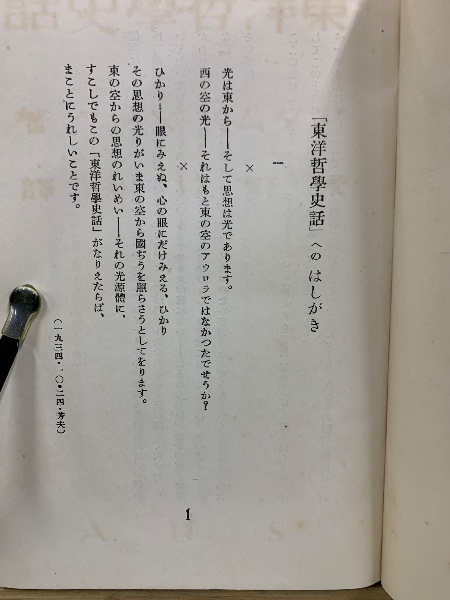 「東洋哲學史話」への はしがき
一
×
光は東から――そして思想は光であります。
西の空の光――それはもと東の空のアウロラではなかつたでせうか?
×
ひかり――眼にみえぬ、心の眼にだけみえる、ひかり
その思想の光りがいま東の空から國ぢうを照らさうとしてをります。
東の空からの思想のれいめい――それの光源體に、
すこしでもこの「東洋哲學史話」がなりえたらば、
まことにうれしいことです。
(一九三四・一〇・二四・芳夫)
1